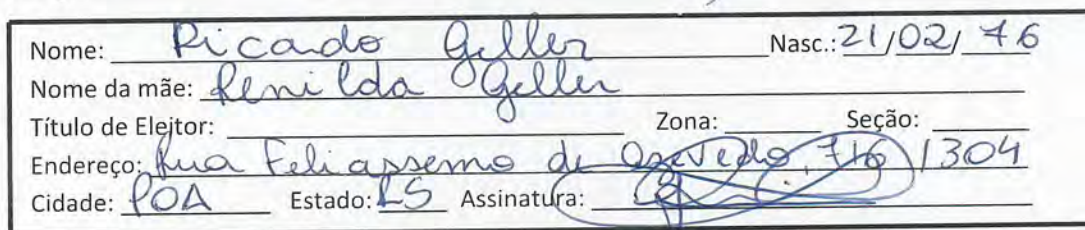 Nome: Ricardo Geller Nasc.: 21/02/76
Nome da mãe: Renilda Geller
Título de Eleitor: Zona: Seção:
Endereço: Rua Feliassemo de Azevedo, 716 / 1304
Cidade: POA Estado: RS Assinatura: